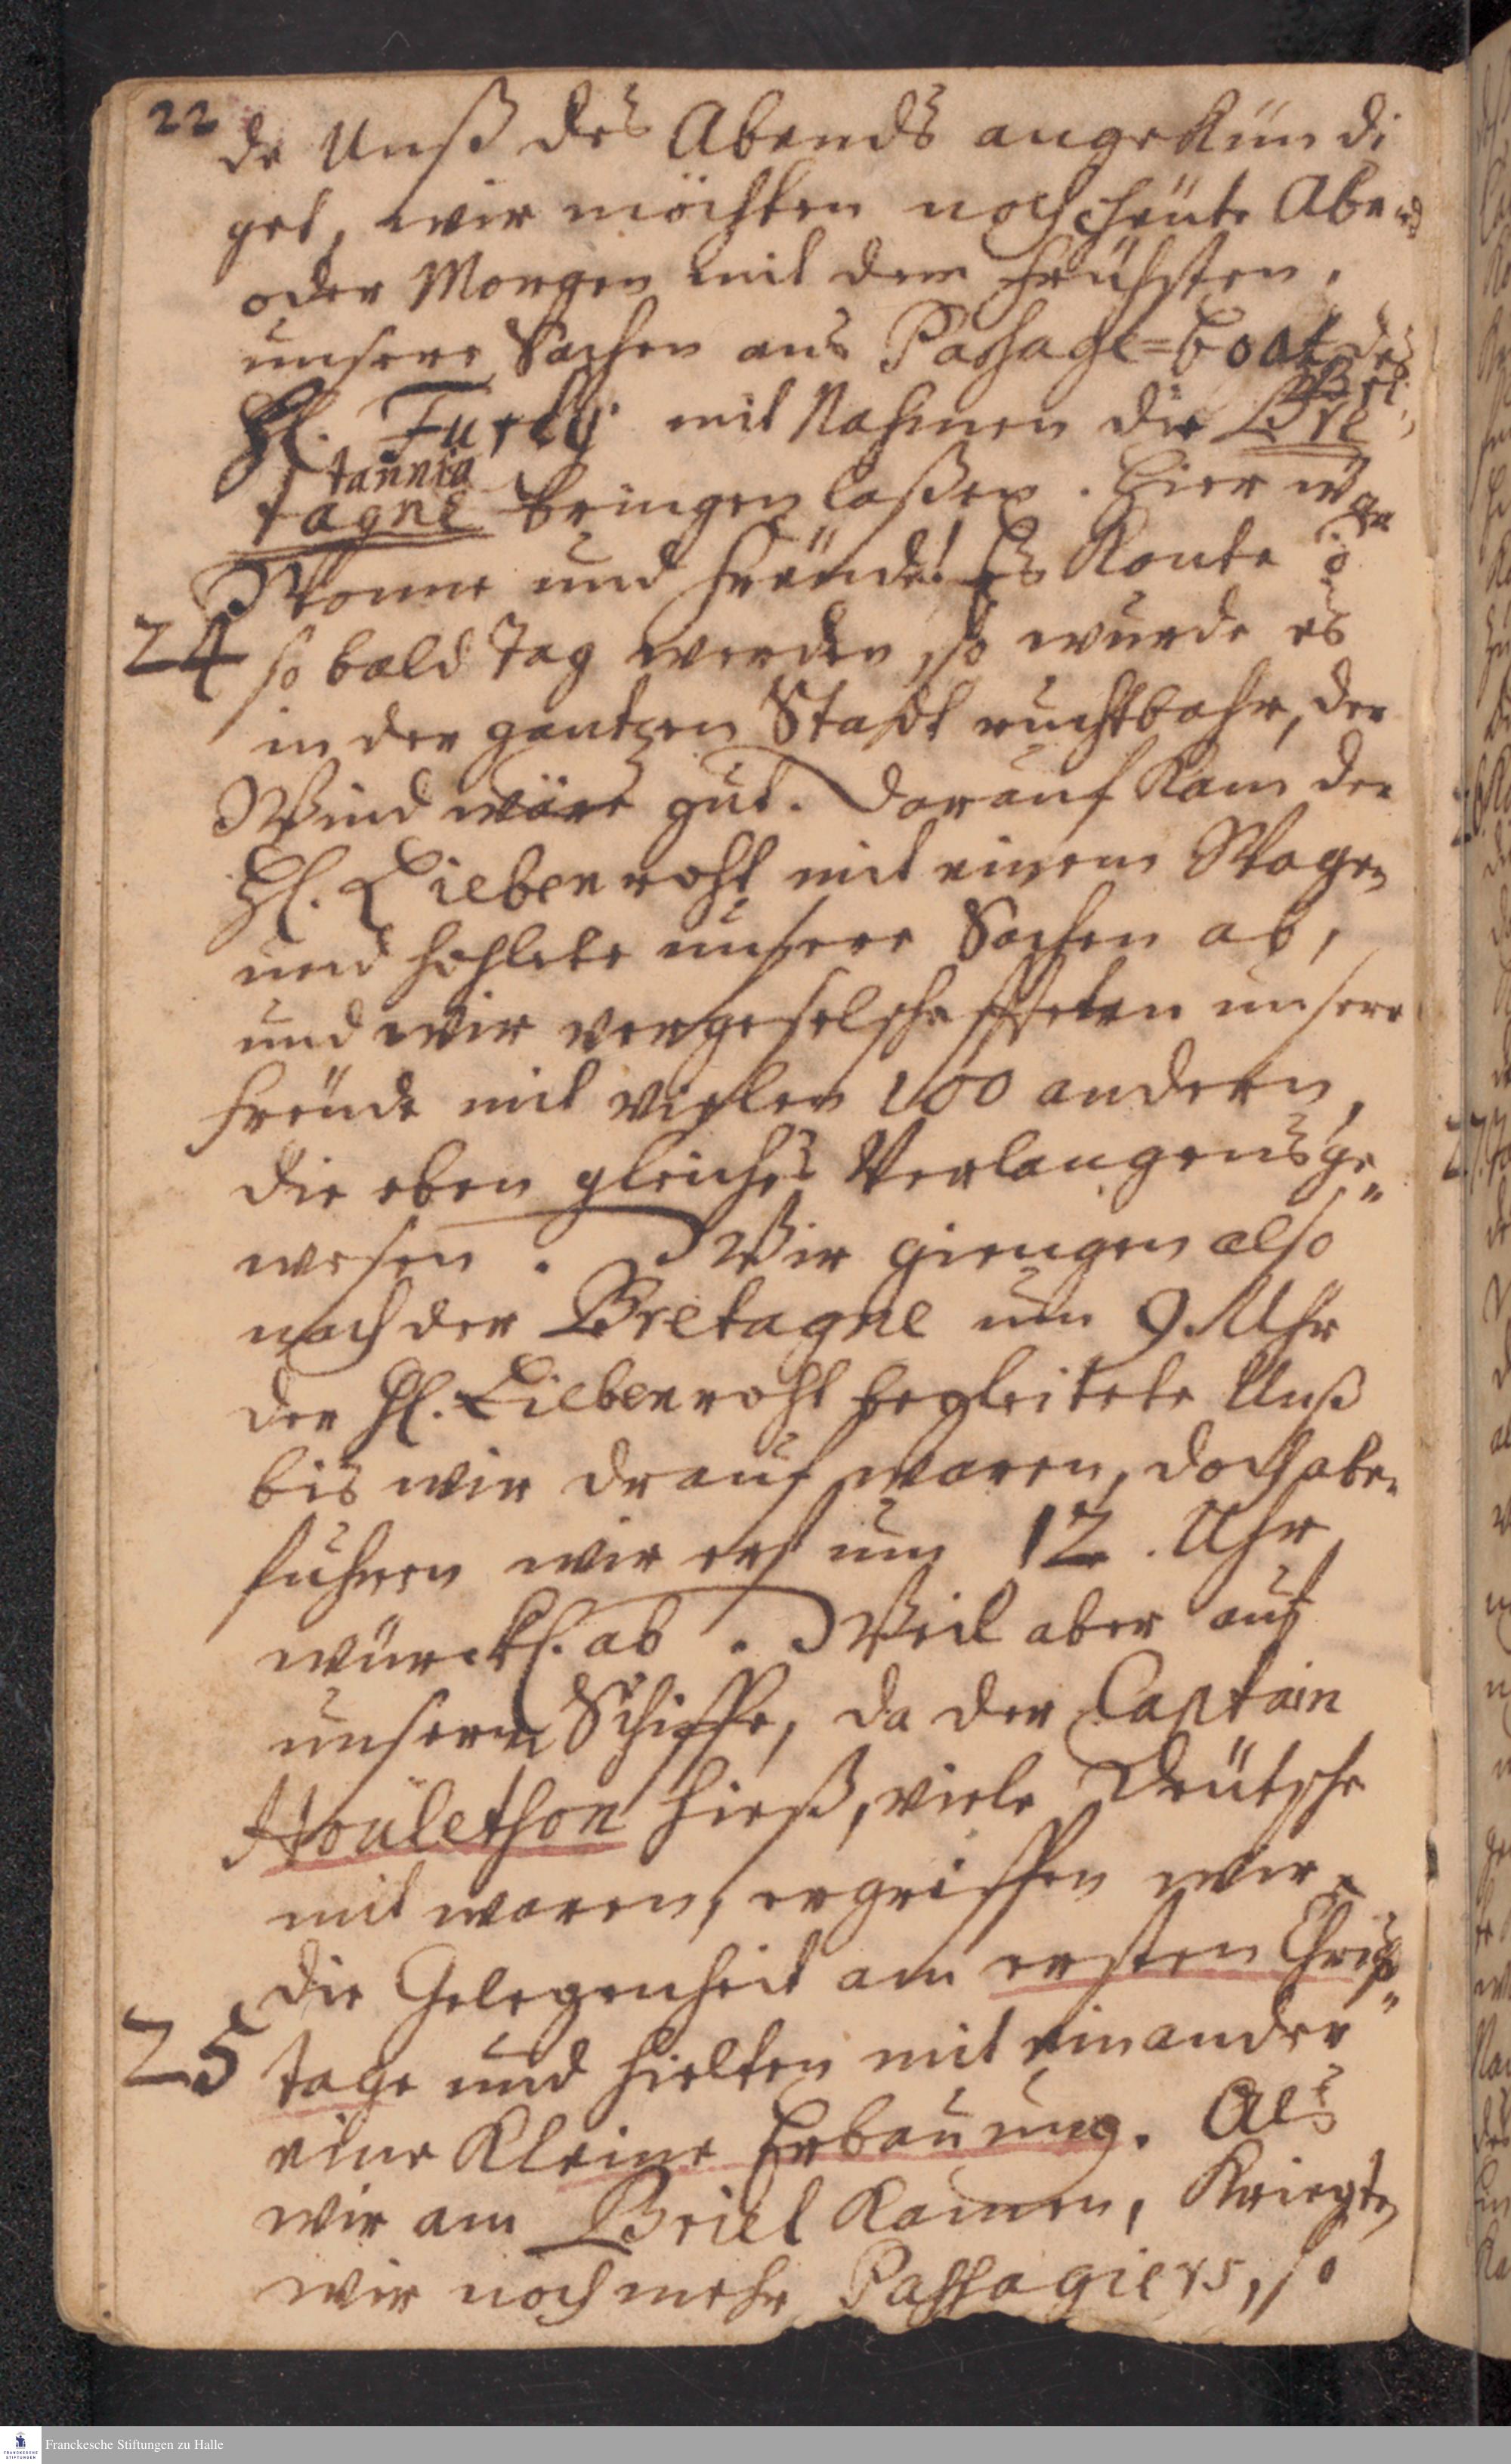 22
de Unß des Abends angekündi
get, wir möchten noch heüte Abend
oder Morgen mit dem frühsten,
unsere Sachen ans Passage=boat des
Hl. Furly mit Nahmen die Bre
Bri
tannia
tagne bringen laßen. Hier war
Wonne und Freüde! Es konte
24 so bald Tag werden, so wurde es
in der gantzen Stadt ruchtbahr, der
Wind wäre gut. Darauf kam der
Hl. Liebenroht mit einem Wagen
und hohlete unsere Sachen ab,
und wir vergeselschaffteten unsere
Freüde mit vielen 100 andern,
die eben gleiches Verlangens ge„
wesen. Wir giengen also
nach der Bretagne um 9. Uhr
der Hl. Liebenroht begleitete Unß
bis wir drauf waren, doch aber
fuhren wir erst um 12. Uhr
würckl. ab. Weil aber auf
unserm Schiffe, da der Captain
Houlethon hieß, viele Deütsche
mit waren, ergriffen wir
die Gelegenheit am ersten Christ„
25 tage und hielten mit einander
eine kleine Erbauung. Als
wir am Briel kamen, kriegten
wir noch mehr Passagiers, so
Franckesche Stiftungen zu Halle